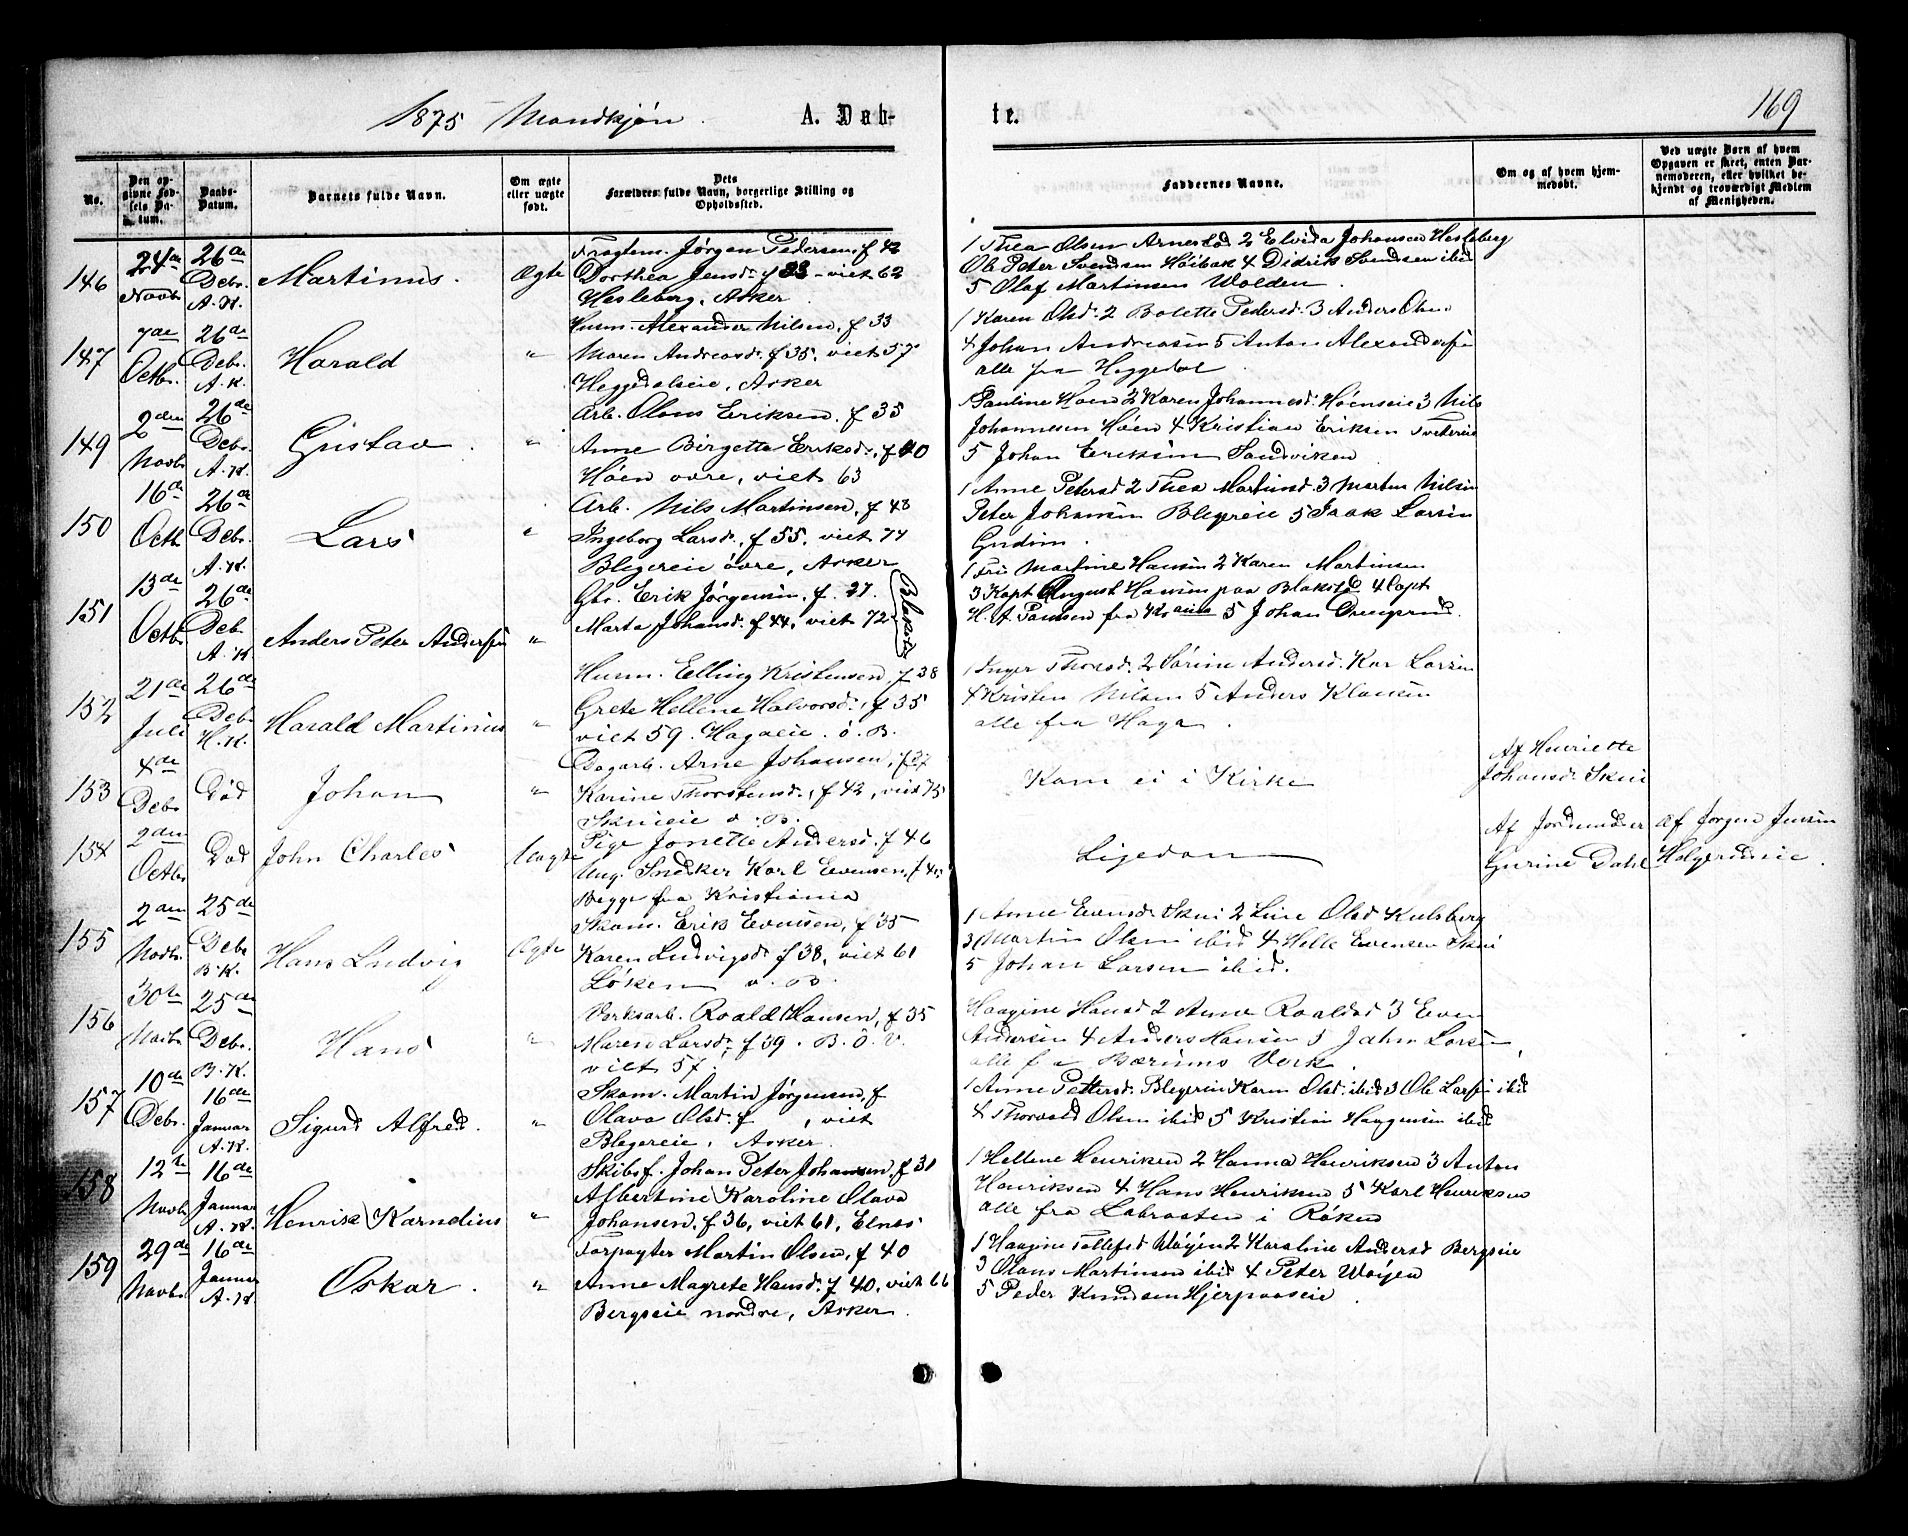 1875 Mandkjøn. A. Døb-
te. 169
No.
Den op-
givne Fød-
sels Da-
tum.
Daabs-
Datum.
Barnets fulde Navn.
Om ægte
eller uægte
født.
Dets
Forældres fulde Navn, borgerlige Stilling og
Opholdssted.
Faddernes Navne.
Om og af hvem hjem-
medøbt.
Ved uægte Børn af hvem
Opgaven er skeet, enten Bar-
nemoderen, eller hvilket be-
kjendt og troværdigt Medlem
af Menigheden.
146 24de Novb. 26de Debr. A.K. Martinus. Ægte
Jørgen Pedersen, f 42
Dorthea Jensd. f 33 - viet 62
Hesleberg, Asker
1 Thea Olsen Arnestad 2 Elvida Johansen Hesleberg
Ole Peter Svendsen Høibak 4 Didrik Svendsen ibid
5 Olaf Martinsen Wolden.
147 7de Octbr. 26de Debr. A.K. Harald "
Husm. Alexander Nilsen, f 33
Maren Andreasd. f 35, viet 57
Heggedalseie, Asker
1 Karen Olsd. 2 Bolette Pedersd. 3 Anders Olsen
4 Johan Andreasen 5 Anton Alexandersen
alle fra Heggedal
149 2den Novbr. 26de Debr. A.K. Gustav. "
Arb. Olaus Eriksen, f 35
Anne Birgette Eriksd., f 40
Høen øvre, viet 63
1 Pauline Høen 2 Karen Johannesd. Høenseie 3 Nils
Johannesen Høen 4 Kristian Eriksen Tvetereie
5 Johan Eriksen Sandviken
150 16de Octb. 26de Debr. A.K. Lars "
Arb. Nils Martinsen, f 48
Ingeborg Larsd., f 55, viet 74
Blegereie øvre, Asker
1 Anne Petersd 2 Thea Martinsd. 3 Marten Nilsen
Peter Johansen Blegereie 5 Isak Larsen
Gudim.
151 13de Octb. 26de Deb. A.K. Anders Peter Andersen "
Gbr. Erik Jørgensen, f. 27.
Marta Johansd. f 44, viet 72
Blakstd
1 Fru Martine Hansen 2 Karen Martinsen
3 Kapt August Hansen paa Blakstd 4 Capt
H. A Paulsen fra 5 Johan
152 21de Juli 26de Deb. H.K. Harald Martinius "
Husm. Elling Kristensen, f 38
Grete Hellene Halvorsd., f 35
viet 59. Hagaeie. ø. B.
1 Inger Thorsd. 2 Sørine Andersd. Kar Larsen
4 Kristen Nilsen 5 Anders Klausen
alle fra Haga.
153 4de Debr. Død Johan "
Dagarb. Arne Johansen, f 37
Karine Thorstensd., f 42, viet 75
Skuieie v. B.
Kom ei i Kirke
Af Henriette
Johansd. Skui
154 2den Octbr. Død John Charles Uægte
Pige Jonette Andersd. f 46
Ung. Snedker Karl Evensen, f 40
Begge fra Kristiania
Ligedan
Af Jordmoder
Gurine Dahl
af Jørgen Jensen
Holgerudeie.
155 2den Novbr. 25de Debr B.K. Hans Ludvig Ægte
Skom. Erik Evensen, f 35
Karen Ludvigsd. f 38, viet 61
Løken v. B.
1 Anne Evensd. Skui 2 Line Olsd Kulsberg
3 Martin Olsen ibid 4 Helle Evensen Skui
5 Johan Larsen ibid.
156 30te Novbr 25de Debr. B.K. Hans "
Verksarb. Roald Hansen, f 35
Maren Larsd., f 39. B. ø. V.
viet 57.
Haagine Hansd 2 Anne Roaldsd 3 Even
Andersen 4 Anders Hansen 5 John Larsen,
alle fra Bærums Verk.
157 10de Debr. 16de Januar A.K. Sigurd Alfred. "
Skom. Martin Jørgensen, f
Olava Olsd. f , viet
Blegereie, Asker.
1 Anne Pettersd. Blegereie Karen Olsd. ibid 3 Ole Larsen ibid
4 Thorvald Olsen ibid 5 Kristian Haagensen ibid
158 12te Novb. 16de Januar A.K. Henrik Karnelius "
Skibsf. Johan Peter Johansen, f 31
Albertine Karoline Olava
Johansen, f 36, viet 61, Elnes
1 Hellene Henriksen 2 Hanna Henriksen 3 Anton
Henriksen 4 Hans Henriksen 5 Karl Henriksen
alle fra Labraaten i Røken
159 29de Novbr. 16de Januar A.K. Oskar. "
Forpagter Martin Olsen, f 40
Anne Magrete Hansd. f 40, viet 66
Bergseie nordre, Asker.
1 Haagine Tollefsd Wøyen 2 Karoline Andersd Bergseie
3 Olaus Martinsen ibid 4 Peter Wøyen
5 Peder Knudsen Hjerpaaseie.